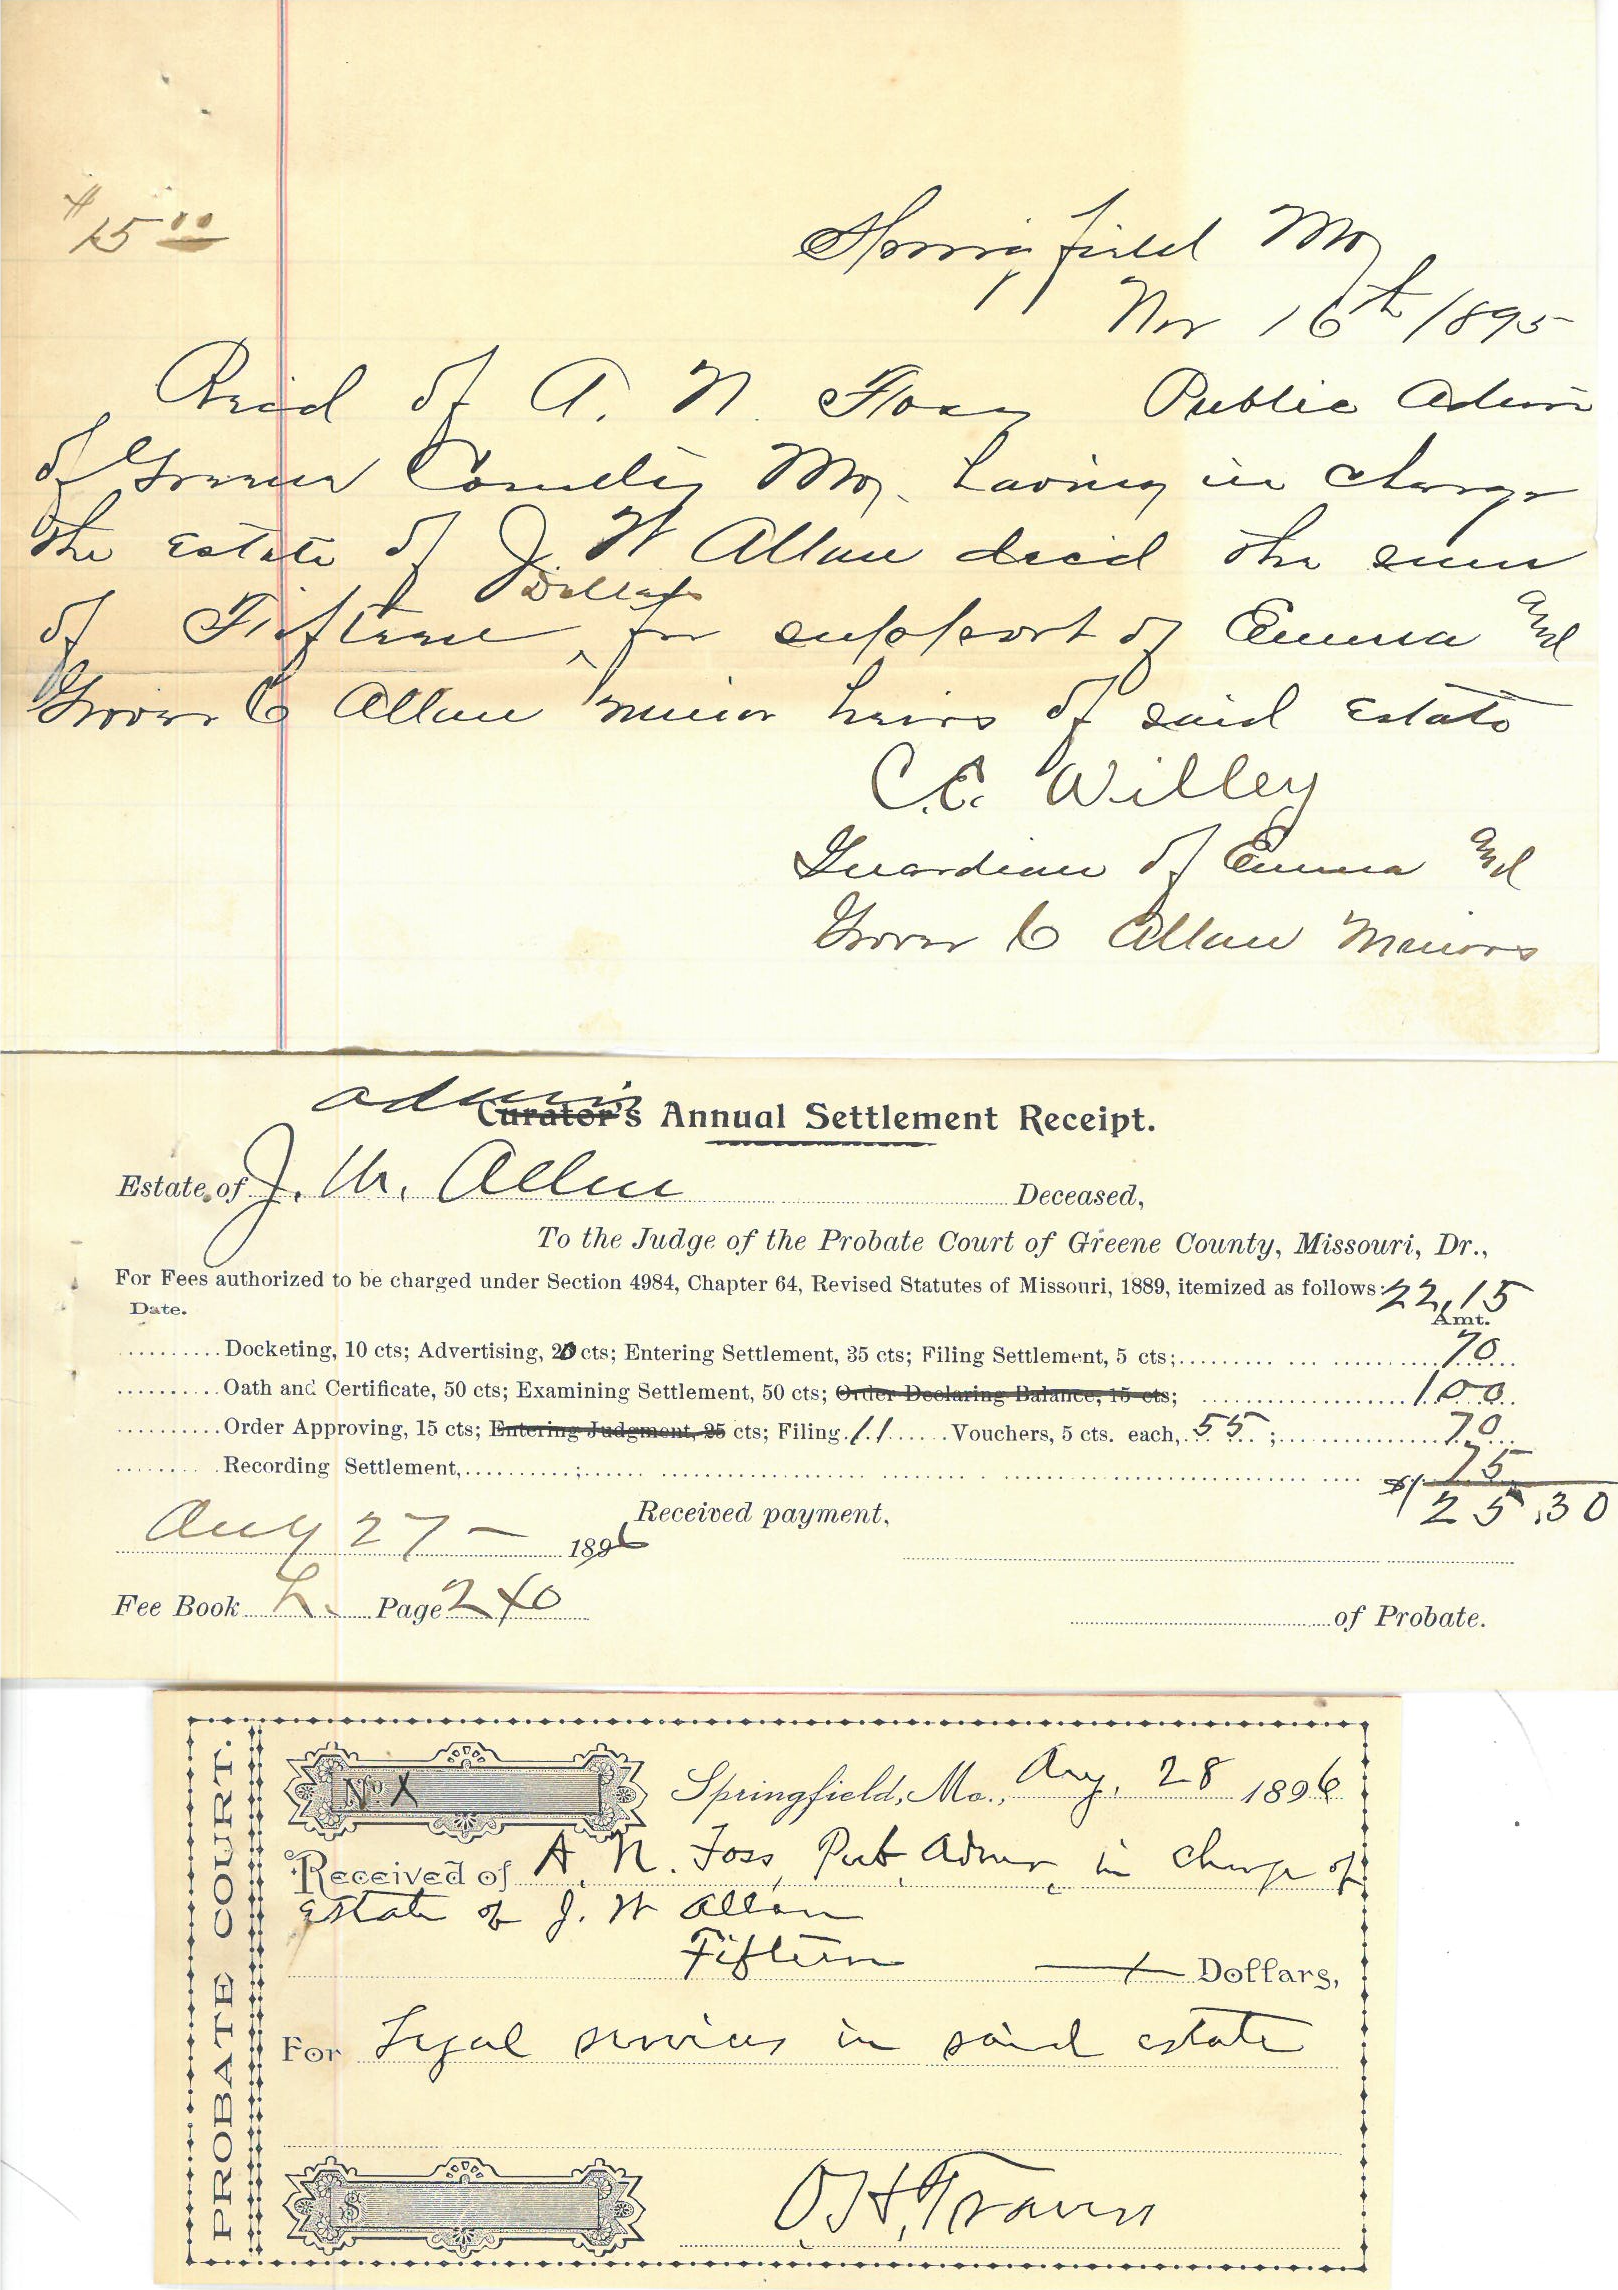 $15 00
Springfield Mo
Nov 16th 1895
Recd of A. N. Foss Public Admr
of Greene County Mo. having in charge
the Estate of J W Allen decd the sum
of Fifteen Dollars for support of Emma and
Grover C Allen minor heirs of said Estate
C.E. Willey
Guardian of Emma and
Grover C Allen Minors
admin
Curator's Annual Settlement Receipt.
Estate of J. W. Allen Deceased,
To the Judge of the Probate Court of Greene County, Missouri, Dr.,
For Fees authorized to be charged under Section 4984, Chapter 64, Revised Statutes of Missouri, 1889, itemized as follows: 22,15
Date. Amt.
Docketing, 10 cts; Advertising, 20 cts; Entering Settlement, 35 cts; Filing Settlement, 5 cts; 70
Oath and Certificate, 50 cts; Examining Settlement, 50 cts; Order Declaring Balance, 15 cts; 1 00
Order Approving, 15 cts; Entering Judgment, 25 cts; Filing 11 Vouchers, 5 cts. each, 55; 70
Recording Settlement, 75
$ 25.30
Received payment,
Aug 27 - 1896
Fee Book L. Page 240
of Probate.
PROBATE COURT.
No. X
Springfield, Mo., Aug. 28 1896
Received of A. N. Foss, Pub Admr in charge of
Estate of J. W Allen
Fifteen Dollars,
For Legal services in said estate
$
O.H. Travers